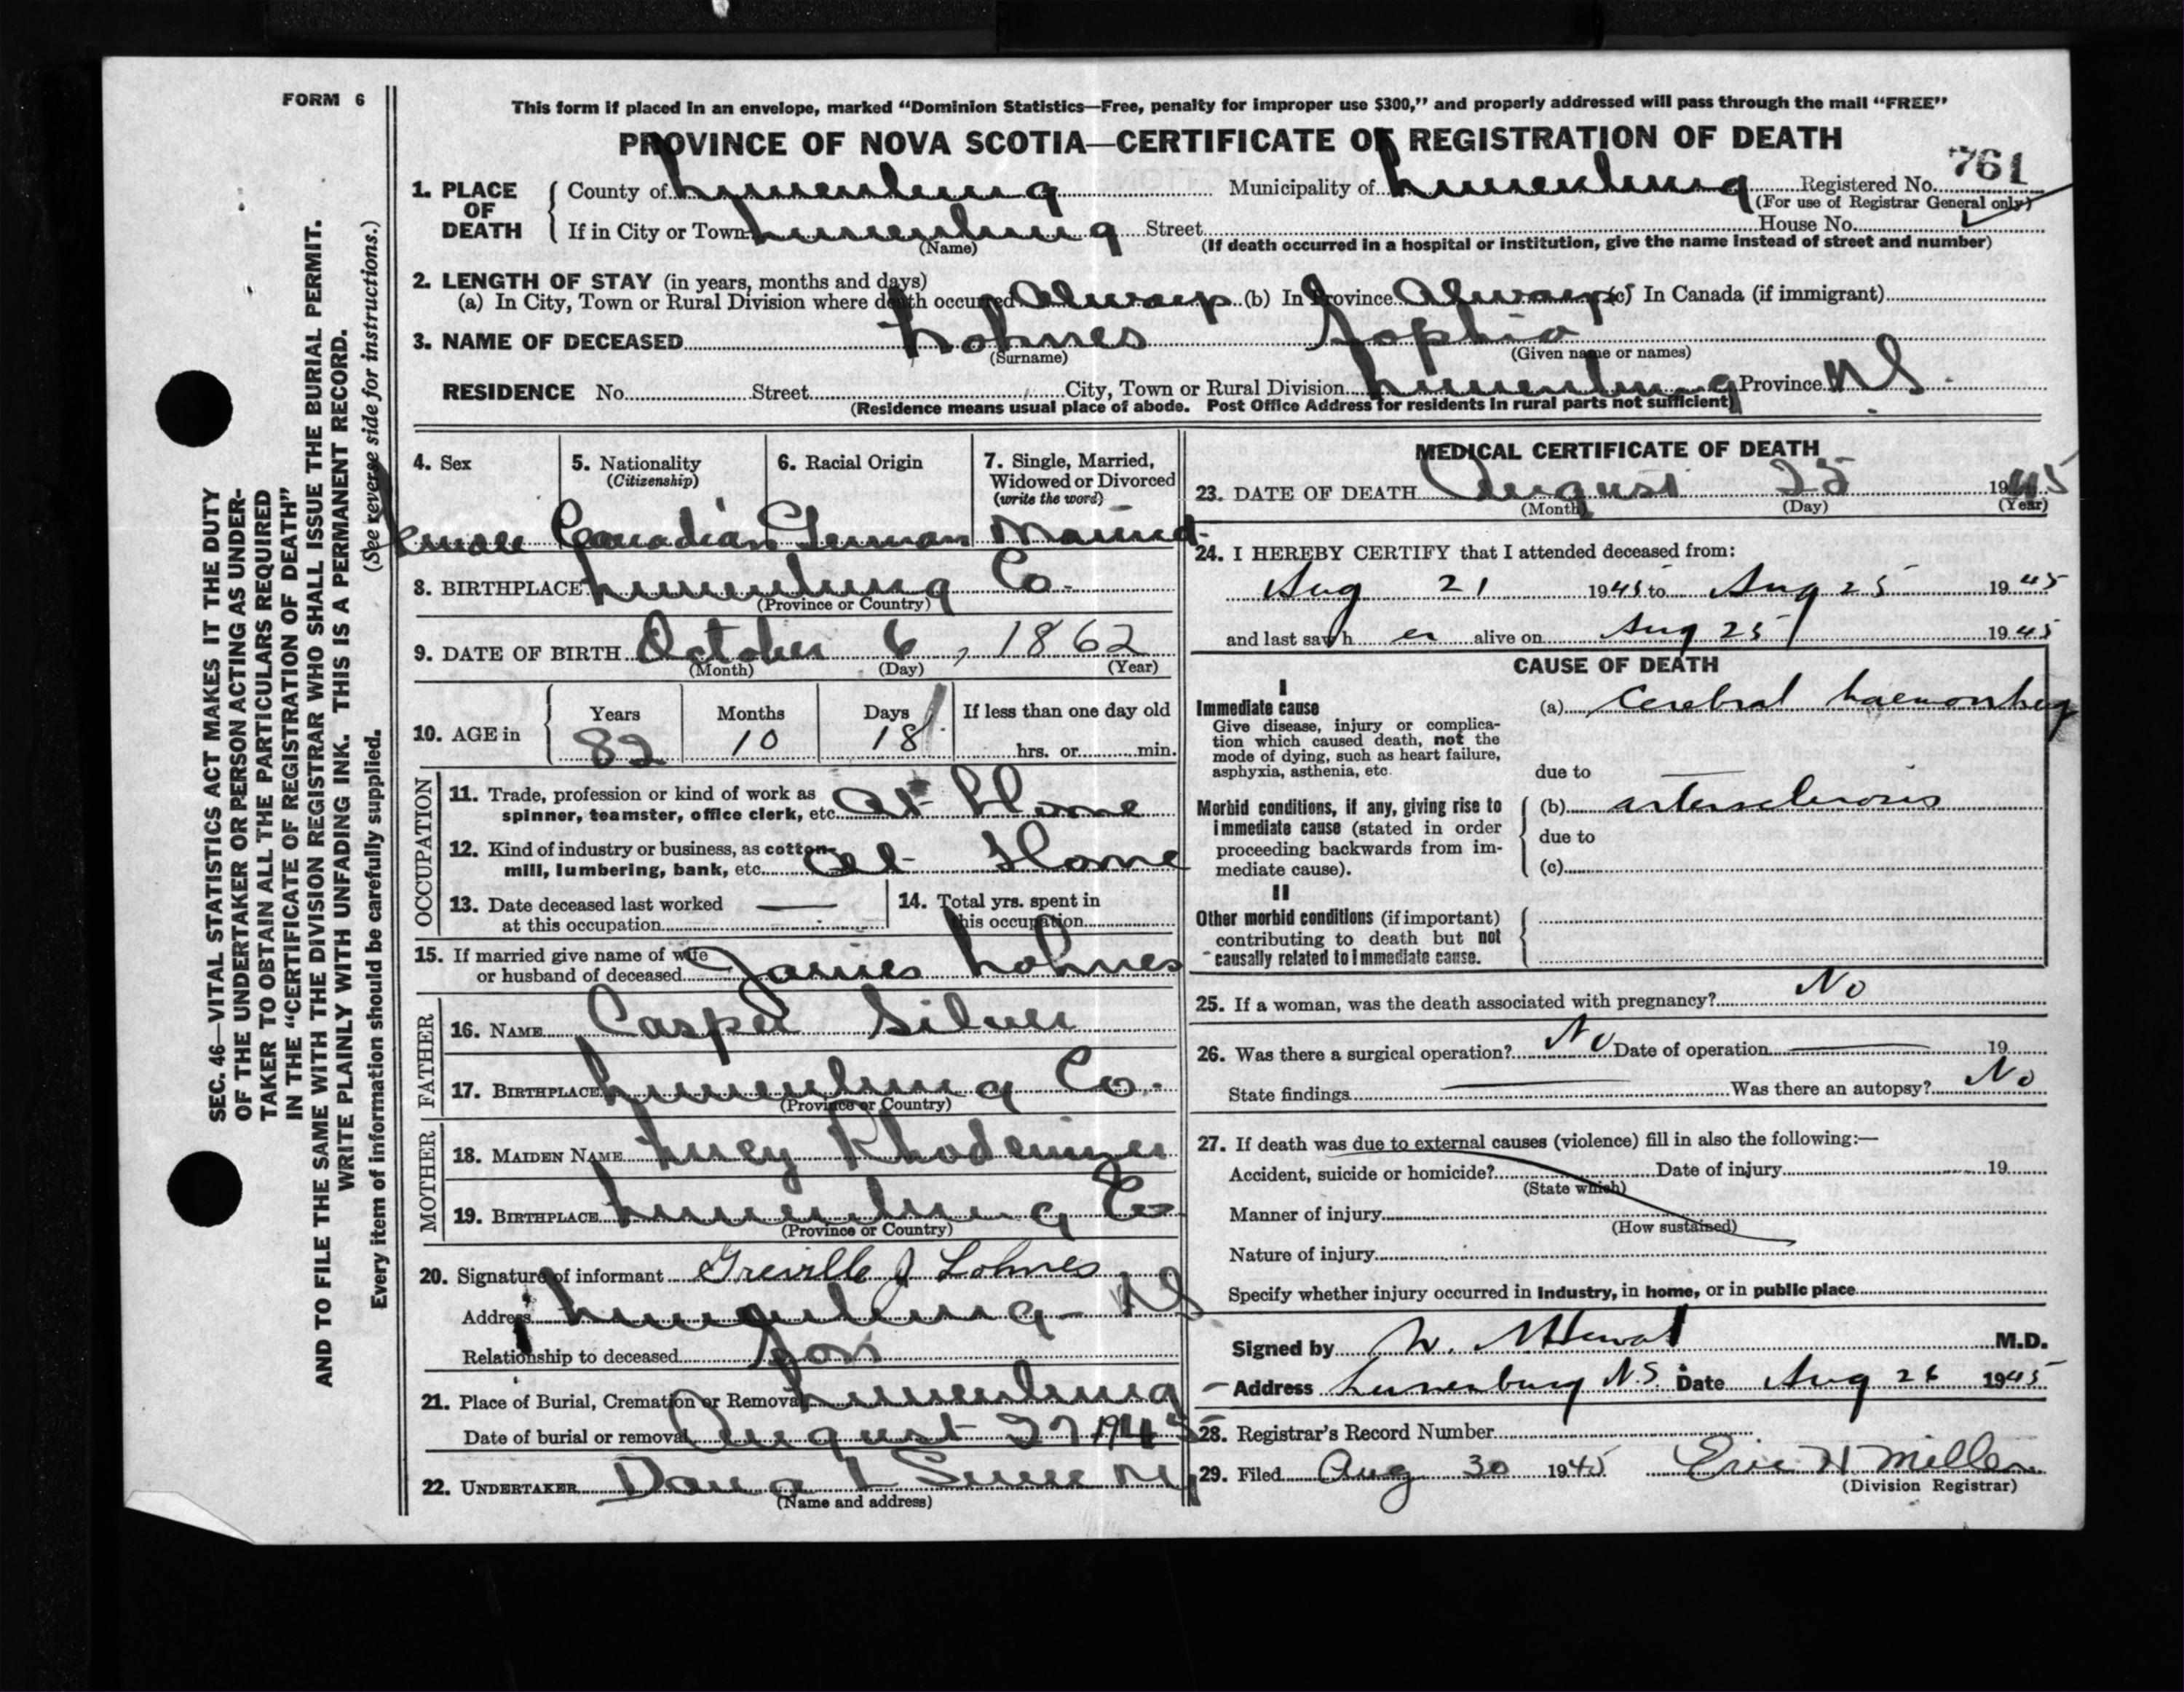 FORM 6
SEC. 46—VITAL STATISTICS ACT MAKES IT THE DUTY
OF THE UNDERTAKER OR PERSON ACTING AS UNDER-
TAKER TO OBTAIN ALL THE PARTICULARS REQUIRED
IN THE "CERTIFICATE OF REGISTRATION OF DEATH"
AND TO FILE THE SAME WITH THE DIVISION REGISTRAR WHO SHALL ISSUE THE BURIAL PERMIT.
WRITE PLAINLY WITH UNFADING INK. THIS IS A PERMANENT RECORD.
(See reverse side for instructions.)
Every item of information should be carefully supplied.
This form if placed in an envelope, marked "Dominion Statistics—Free, penalty for improper use $300," and properly addressed will pass through the mail "FREE"
PROVINCE OF NOVA SCOTIA—CERTIFICATE OF REGISTRATION OF DEATH
761
1. PLACE OF DEATH
County of Lunenburg Municipality of Lunenburg Registered No.
(For use of Registrar General only)
If in City or Town Lunenburg Street House No.
(Name) (If death occurred in a hospital or institution, give the name instead of street and number)
2. LENGTH OF STAY (in years, months and days)
(a) In City, Town or Rural Division where death occurred Always (b) In Province Always (c) In Canada (if immigrant)
3. NAME OF DECEASED Lohnes Sophia
(Surname) (Given name or names)
RESIDENCE No. Street City, Town or Rural Division Lunenburg Province N S.
(Residence means usual place of abode. Post Office Address for residents in rural parts not sufficient)
4. Sex 5. Nationality (Citizenship) 6. Racial Origin 7. Single, Married, Widowed or Divorced (write the word)
Female Canadian German Married
8. BIRTHPLACE Lunenburg Co.
(Province or Country)
9. DATE OF BIRTH October 6, 1862
(Month) (Day) (Year)
10. AGE in Years Months Days If less than one day old
82 10 18 hrs. or min.
OCCUPATION
11. Trade, profession or kind of work as spinner, teamster, office clerk, etc. At Home
12. Kind of industry or business, as cotton-mill, lumbering, bank, etc. At Home
13. Date deceased last worked at this occupation
14. Total yrs. spent in this occupation
15. If married give name of wife or husband of deceased James Lohnes
FATHER
16. NAME Casper Silver
17. BIRTHPLACE Lunenburg Co.
(Province or Country)
MOTHER
18. MAIDEN NAME Lucy Rhodeniser
19. BIRTHPLACE Lunenburg Co
(Province or Country)
20. Signature of informant Greville J Lohnes
Address Lunenburg N S.
Relationship to deceased Son
21. Place of Burial, Cremation or Removal Lunenburg
Date of burial or removal August 27 1945
22. UNDERTAKER
(Name and address)
MEDICAL CERTIFICATE OF DEATH
23. DATE OF DEATH August 25 1945
(Month) (Day) (Year)
24. I HEREBY CERTIFY that I attended deceased from:
Aug 21 1945 to Aug 25 1945
and last saw h er alive on Aug 25 1945
CAUSE OF DEATH
I
Immediate cause
Give disease, injury or complication which caused death, not the mode of dying, such as heart failure, asphyxia, asthenia, etc.
(a) Cerebral haemorrhage
due to
Morbid conditions, if any, giving rise to immediate cause (stated in order proceeding backwards from immediate cause).
(b) arteriosclerosis
due to
(c)
II
Other morbid conditions (if important) contributing to death but not causally related to immediate cause.
25. If a woman, was the death associated with pregnancy? No
26. Was there a surgical operation? No Date of operation 19
State findings Was there an autopsy? No
27. If death was due to external causes (violence) fill in also the following:—
Accident, suicide or homicide? Date of injury 19
(State which)
Manner of injury
(How sustained)
Nature of injury
Specify whether injury occurred in Industry, in home, or in public place
Signed by M.D.
Address Lunenburg N.S. Date Aug 26 1945
28. Registrar's Record Number
29. Filed Aug 30 1945 Eric H Miller
(Division Registrar)